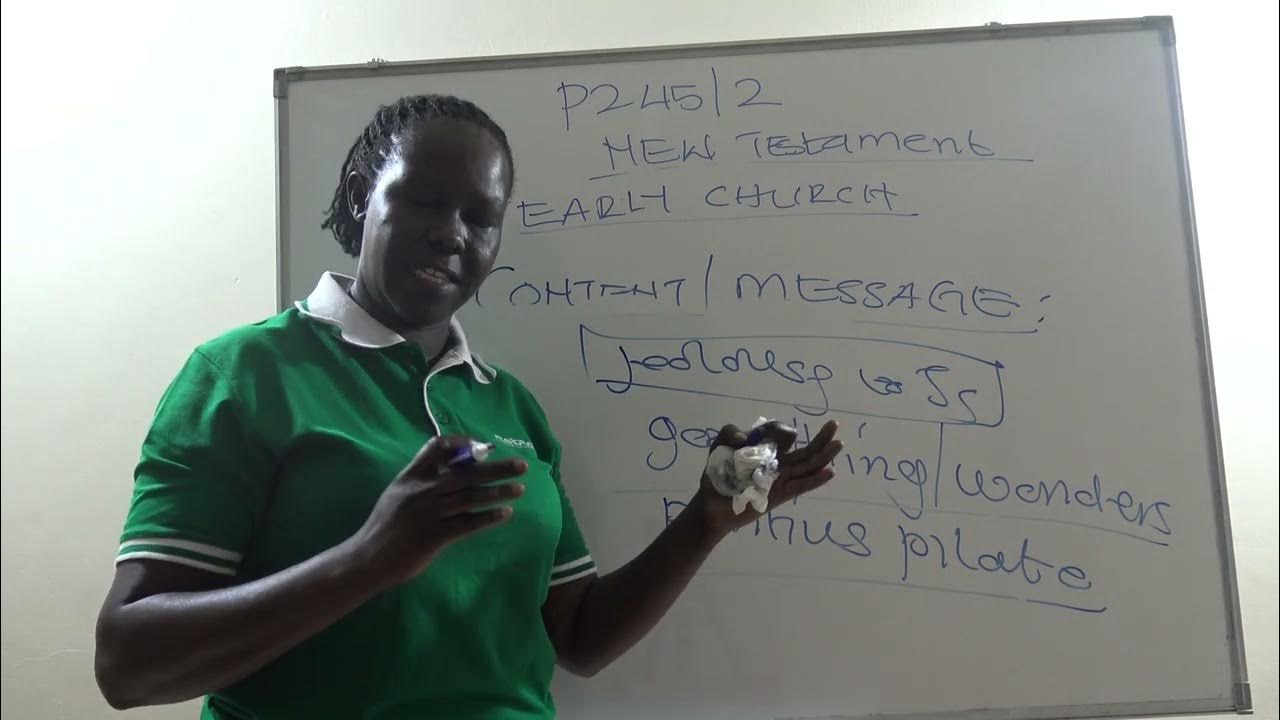 P245/2
NEW Testament
EARLY CHURCH
CONTENT/MESSAGE:
Jealousy
/wonders
pilate